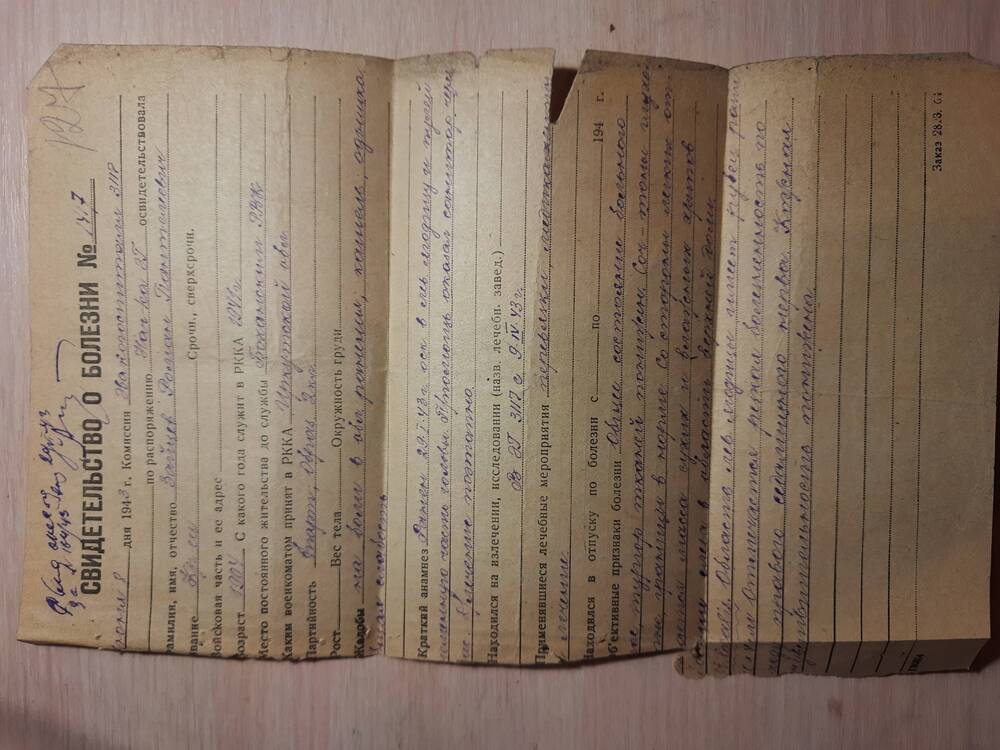 127
СВИДЕТЕЛЬСТВО О БОЛЕЗНИ № 1417
июня 8 дня 1943 г. Комиссия Эвакогоспиталя 3117
по распоряжению Нач-ка ЭГ освидетельствовала
фамилия, имя, отчество Зайцев Роман Пантелеевич
звание Кр-ец Срочн., сверхсрочн.
Войсковая часть и ее адрес
Возраст 1904 С какого года служит в РККА 1941 г.
Место постоянного жительства до службы Боханским РВК
Каким военкоматом принят в РККА Иркутской обл
Партийность б/парт, Образ. 2 кл.
Рост Вес тела Окружность груди
Жалобы на боли в обл. ранения, кашель, одышка
слабость
Краткий анамнез Ранен 29.I-43 г. оск. в лев. ягодицу и пулей
теменную часть головы. П/помощь оказал санитар, через
час. Э/лечение поэтапно.
Находился на излечении, исследовании (назв. лечебн. завед.)
В ЭГ 3117 с 9.IV-43 г.
Применявшиеся лечебные мероприятия перевязки, медикаментозн
лечение
Находился в отпуску по болезни с по 194 г.
Объективные признаки болезни Общее состояние больного
тургор тканей понижен. Сер-тоны глухо
границы в норме. Со стороны легких отм
чается масса сухих и влажных хрипов
слева в области верхней доли.
Область лев. ягодицы имеет рубец
Отмечается резкая болезненность по
ходу правого седалищного нерва. Кожная
чувствительность понижена.
Заказ 28.3. 64